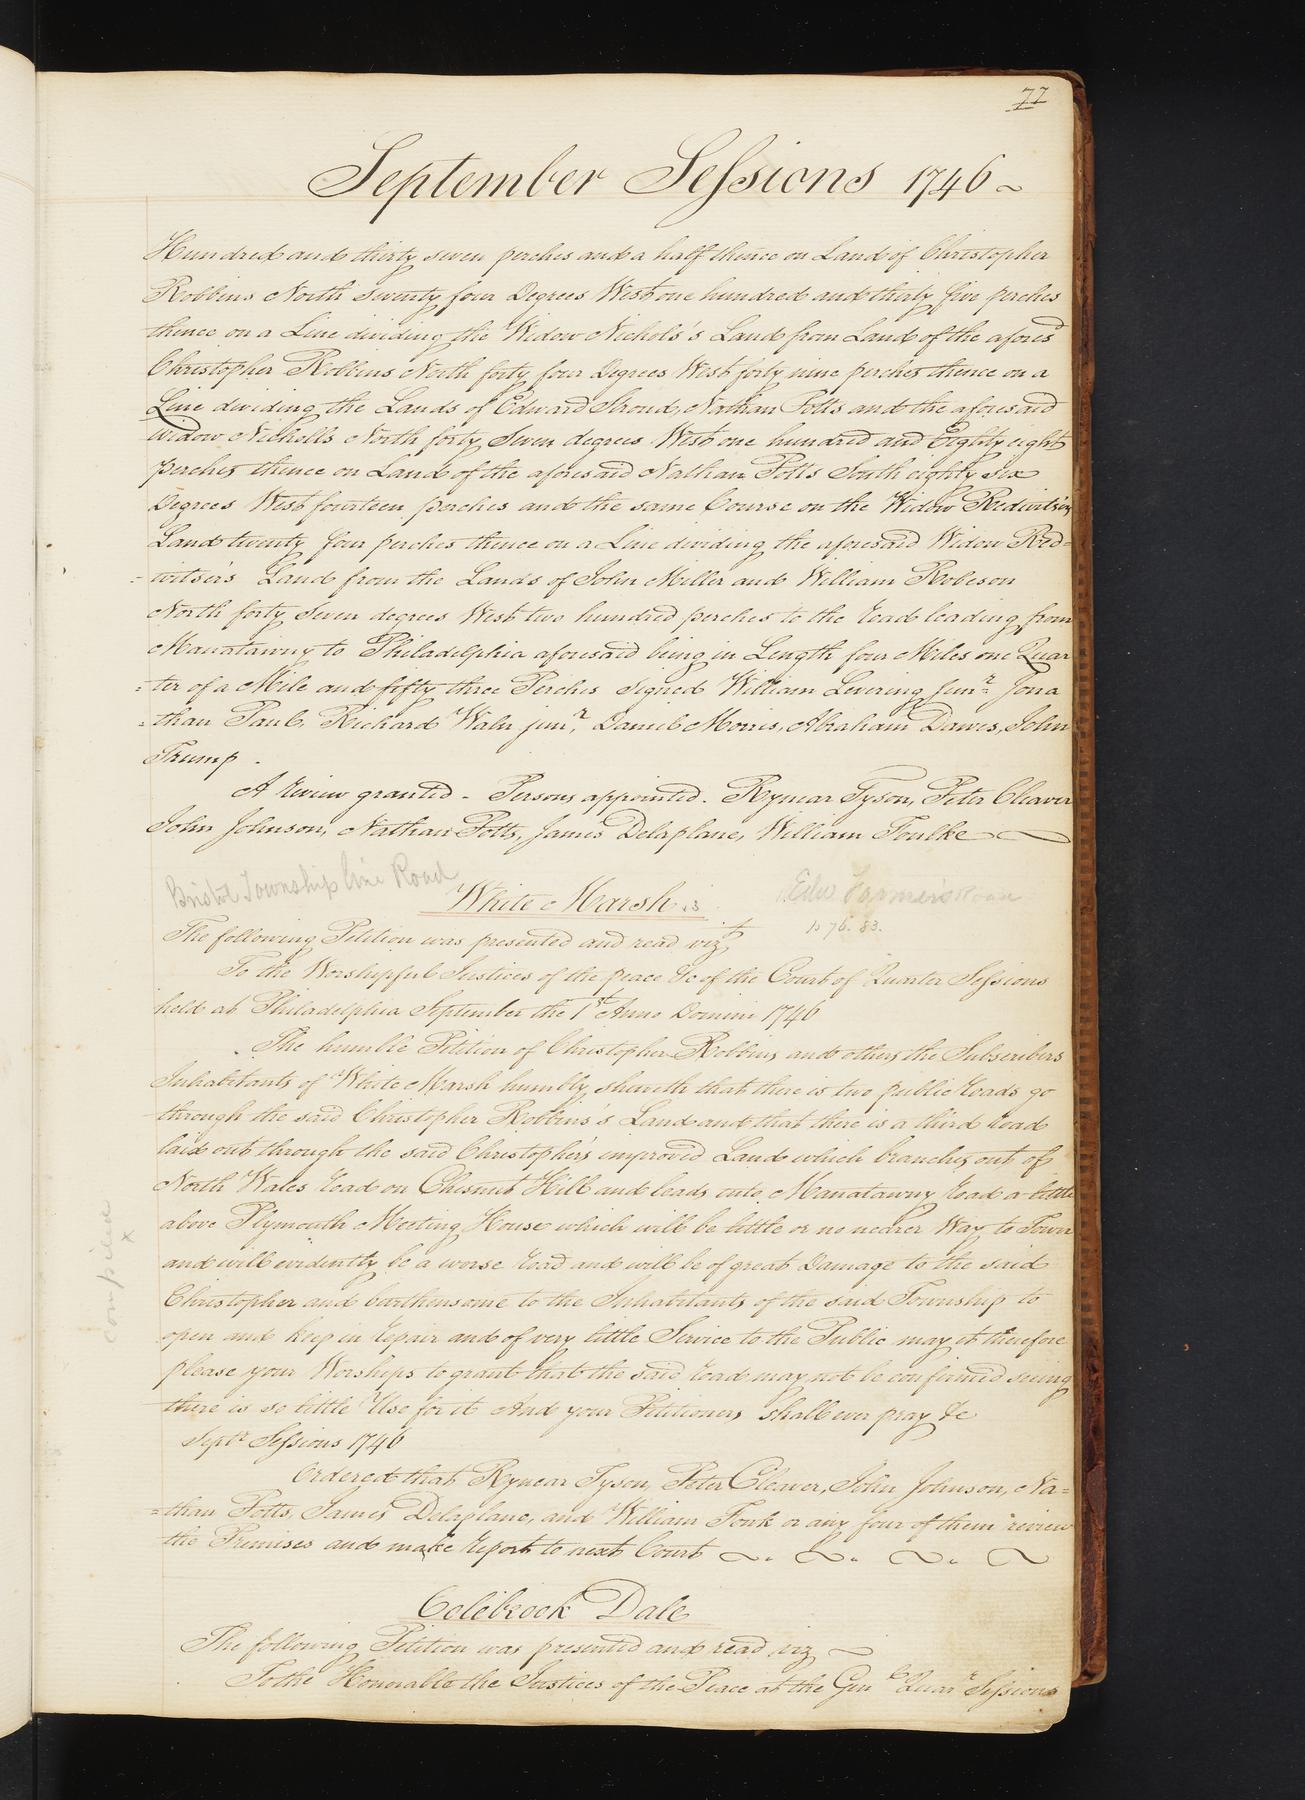 77
September Sessions 1746
Hundred and thirty seven perches and a half thence on Land of Christopher
Robbins North Twenty four Degrees West one hundred and thirty five perches
thence on a Line dividing the Widow Nichols's Land from Land of the afores'd
Christopher Robbins North forty four Degrees West forty nine perches thence on a
Line dividing the Lands of Edward Stroud, Nathan Potts and the aforesaid
Widow Nicholls North forty Seven degrees West one hundred and Eighty eight
perches thence on Land of the aforesaid Nathan Potts South eighty six
Degrees West fourteen perches and the same Course on the Widow Redwitser's
Land twenty four perches thence on a Line dividing the aforesaid Widow Red=
=witser's Land from the Lands of John Miller and William Robeson
North forty Seven degrees West two hundred perches to the Road leading from
Manatawny to Philadelphia aforesaid being in Length four Miles one Quar
=ter of a Mile and fifty three Perches Signed William Levering Junr. Jona
=than Paul, Richard Waln junr, Daniel Morris, Abraham Dawes, John
Trump.
A Review granted - Persons appointed. Rynear Tyson, Peter Cleaver
John Johnson, Nathan Potts, James Delaplane, William Foulke
Bristol Township line Road
White Marsh is
Farmer's Road
76. 83.
The following Petition was presented and read vizt
To the Worshipful Justices of the peace &c of the Court of Quarter Sessions
held at Philadelphia September the 1st Anno Domini 1746
The humble Petition of Christopher Robbins and others the Subscribers
Inhabitants of White Marsh humbly sheweth that there is two public Roads go
through the said Christopher Robbins's Land and that there is a third Road
laid out through the said Christopher's improved Land which branches out of
North Wales Road on Chesnut Hill and leads into Manatawny Road a little
above Plymouth Meeting House which will be little or no nearer Way to Town
and will evidently be a worse Road and will be of great Damage to the said
Christopher and burthensome to the Inhabitants of the said Township to
open and keep in Repair and of very little Service to the Public may it therefore
please your Worships to grant that the said Road may not be confirmed seeing
there is so little Use for it And your Petitioners shall ever pray &c
Septr Sessions 1746
Ordered that Rynear Tyson, Peter Cleaver, John Johnson, Na=
=than Potts, James Delaplane, and William Fouk or any four of them review
the Premises and make Report to next Court
compiled
x
Colebrook Dale
The following Petition was presented and read viz
To the Honorable the Justices of the Peace at the Genl Quarr Sessions